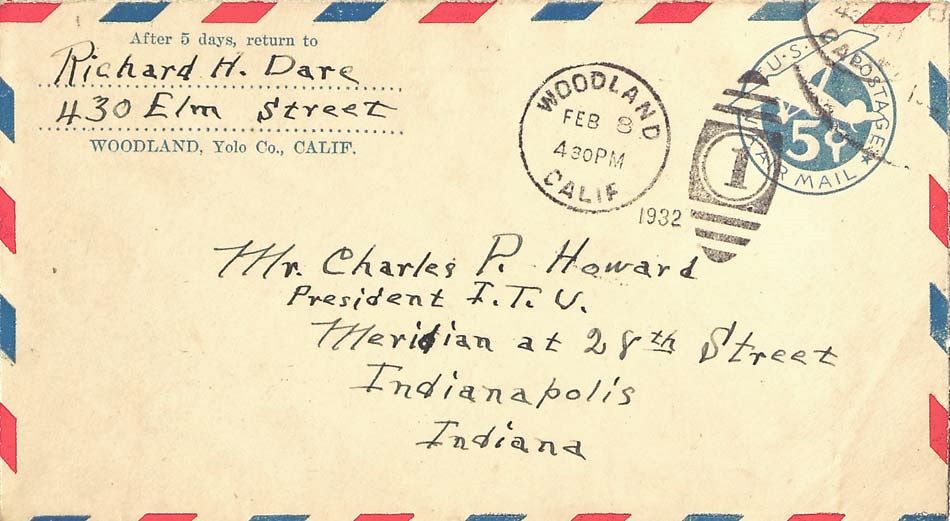 After 5 days, return to
Richard H. Dare
430 Elm Street
WOODLAND, Yolo Co., CALIF.
WOODLAND
FEB 8
430PM
CALIF
1932
1
U.S. POSTAGE
5¢
AIR MAIL
Mr. Charles P. Howard
President I.T.U.
Meridian at 28th Street
Indianapolis
Indiana